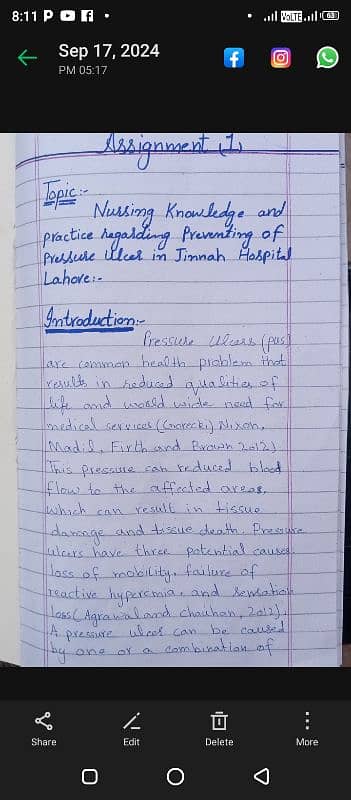 8:11 P
VoLTE 63
Sep 17, 2024
PM 05:17
Assignment (1)
Topic:-
Nursing Knowledge and
practice regarding Preventing of
Pressure Ulcer in Jinnah Hospital
Lahore:-
Introduction:-
Pressure Ulcers (pus)
are common health problem that
results in reduced qualities of
life and world wide need for
medical services (Gorecki, Nixon,
Madill, Firth and Brown 2012)
This pressure can reduced blood
flow to the affected areas,
which can result in tissue
damage and tissue death. Pressure
ulcers have three potential causes.
loss of mobility, failure of
reactive hyperemia, and sensation
loss (Agrawal and chauhan, 2012).
A pressure ulcer can be caused
by one or a combination of
Share
Edit
Delete
More